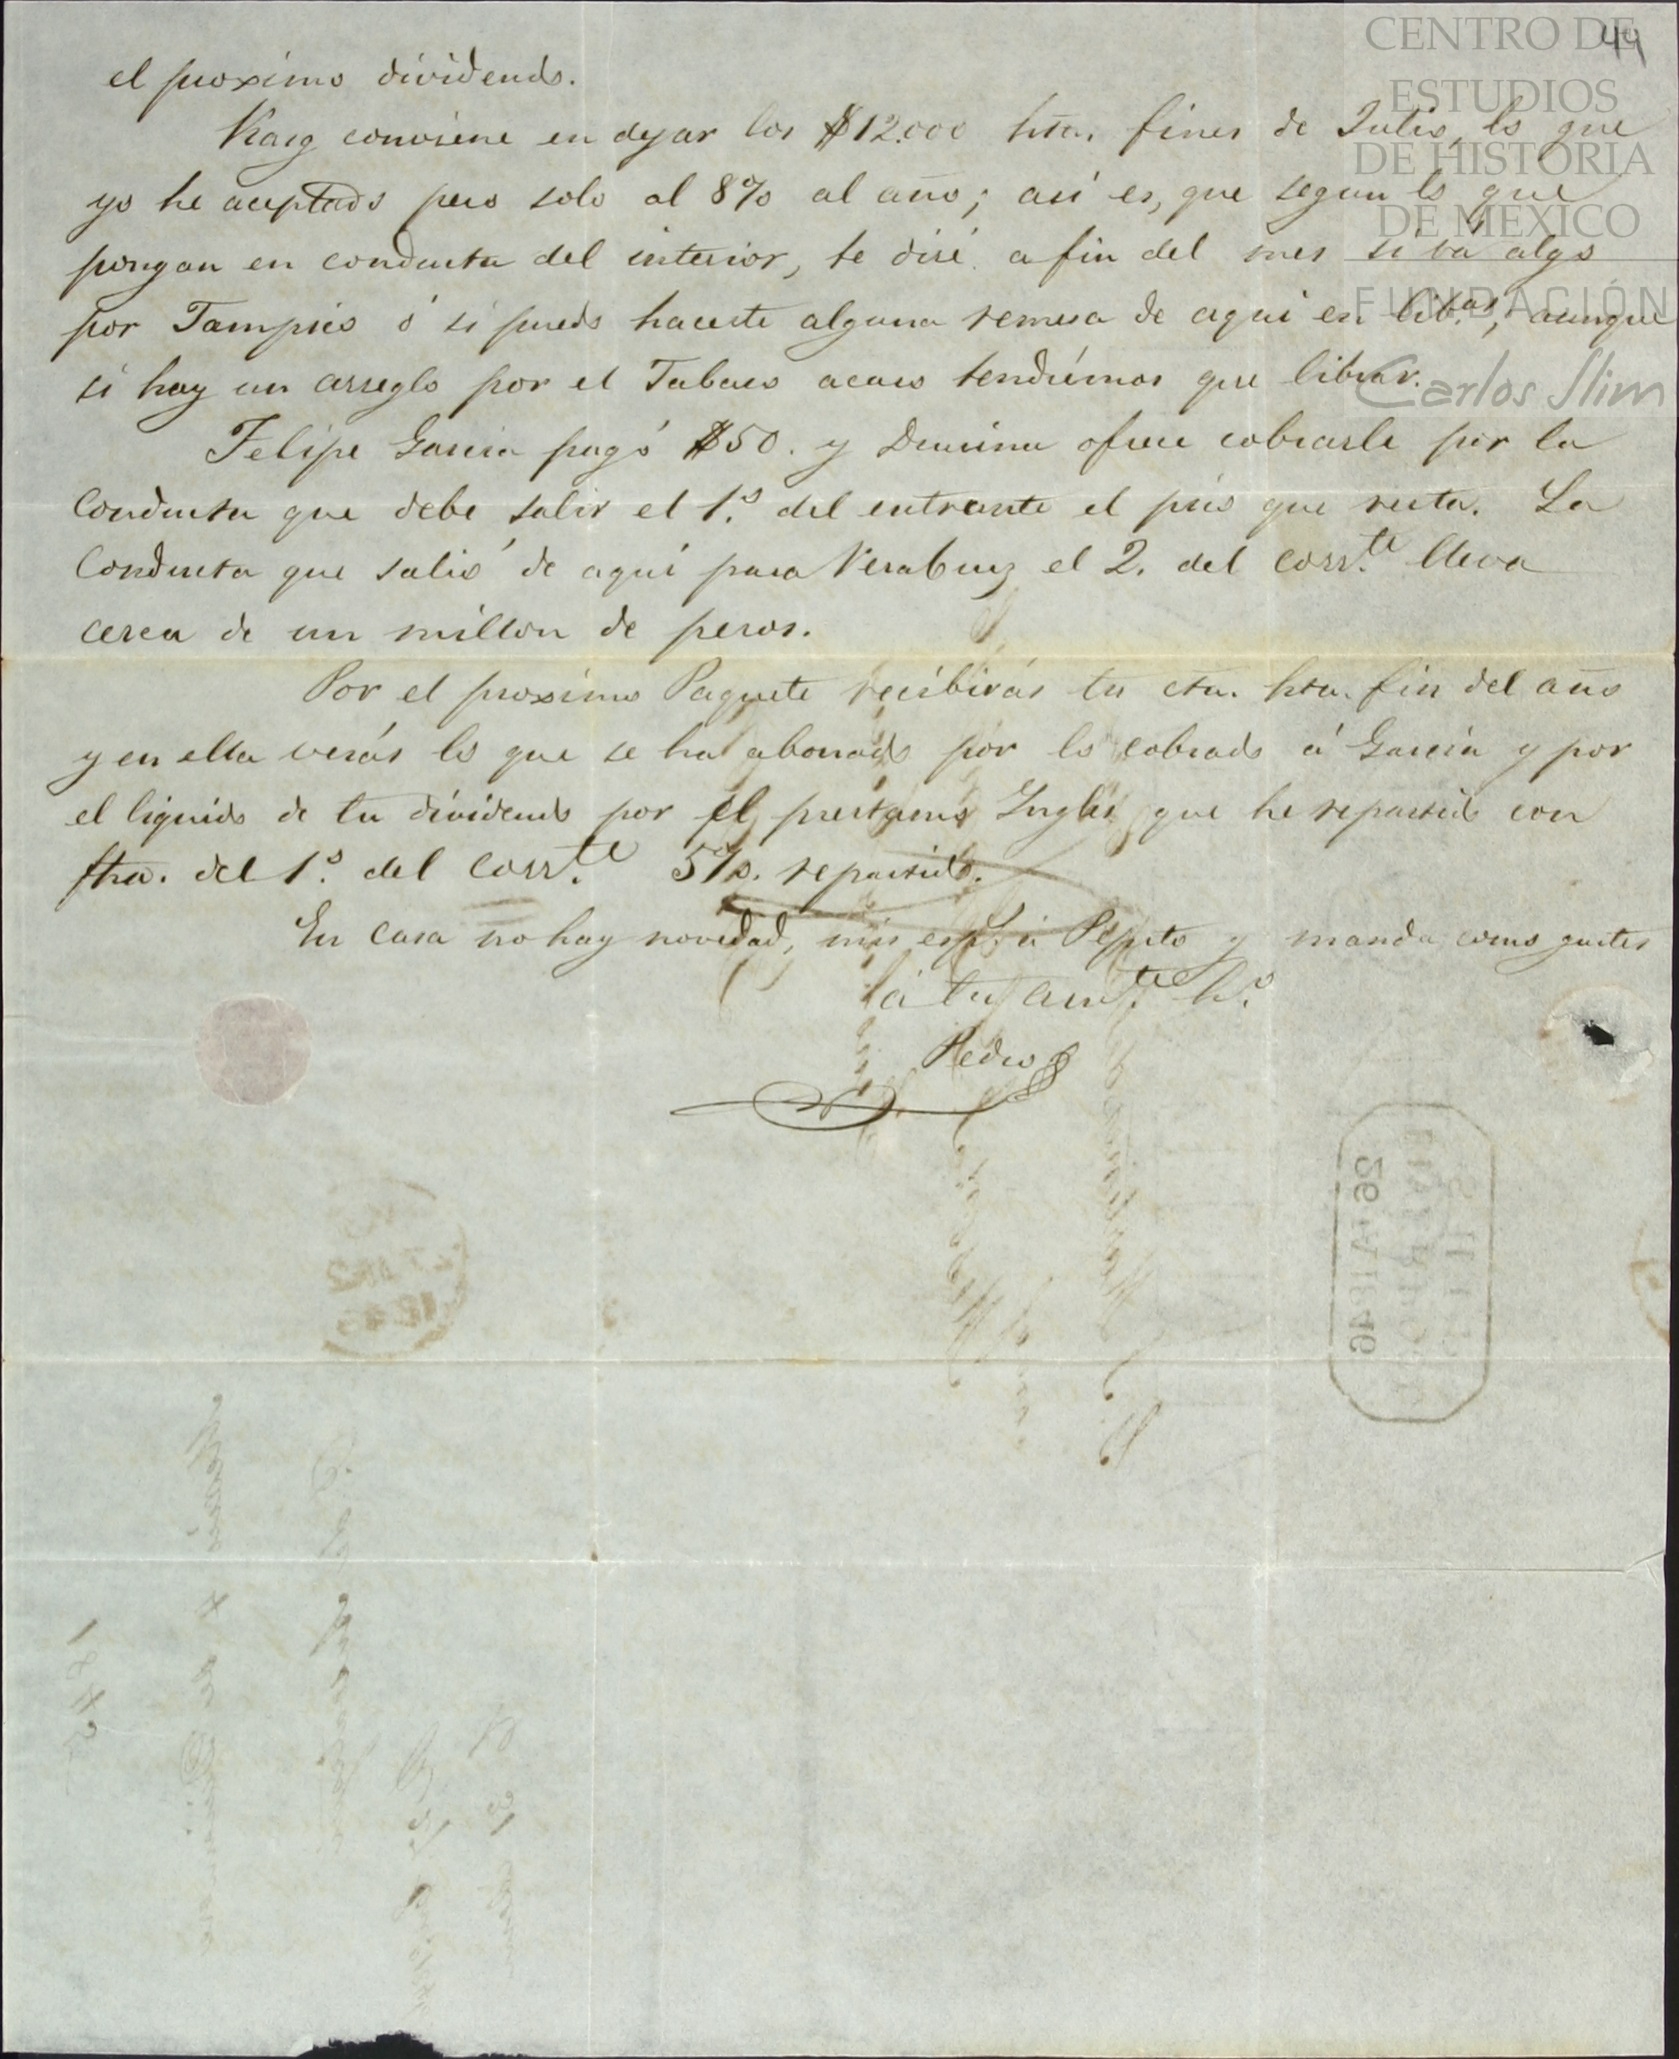 CENTRO DE
ESTUDIOS
DE HISTORIA
DE MÉXICO
FUNDACIÓN
Carlos Slim
44
el proximo dividendo.
conviene en dejar los $12.000 hta. fines de Julio, lo que
yo he aceptado pero solo al 8% al año; asi es, que segun lo que
pongan en conducta del interior, te diré a fin del mes si vá algo
por Tampico ó si puedo hacerte alguna remesa de aqui en lib.as, aunque
si hay un arreglo por el Tabaco acaso tendrémos que librar.
Felipe Garcia pagó $50. y ofrece cobrarle por la
conducta que debe salir el 1.o del entrante el pico que resta. La
Conducta que salió de aquí para Verabruz el 2. del corr.te lleva
cerca de un millon de pesos.
Por el proximo Paquete recibirás tu cta. hta. fin del año
y en ella verás lo que se ha abonado por lo cobrado á Garcia y por
el liquido de tu dividendo por el prestamo Inglés que he repartido con
fha. del 1.o del corr.te 5%. repartido.
En casa no hay novedad, mis esp.s á Pepito y manda como gustes
á tu am.te h.o
Pedro
26 MA 1846